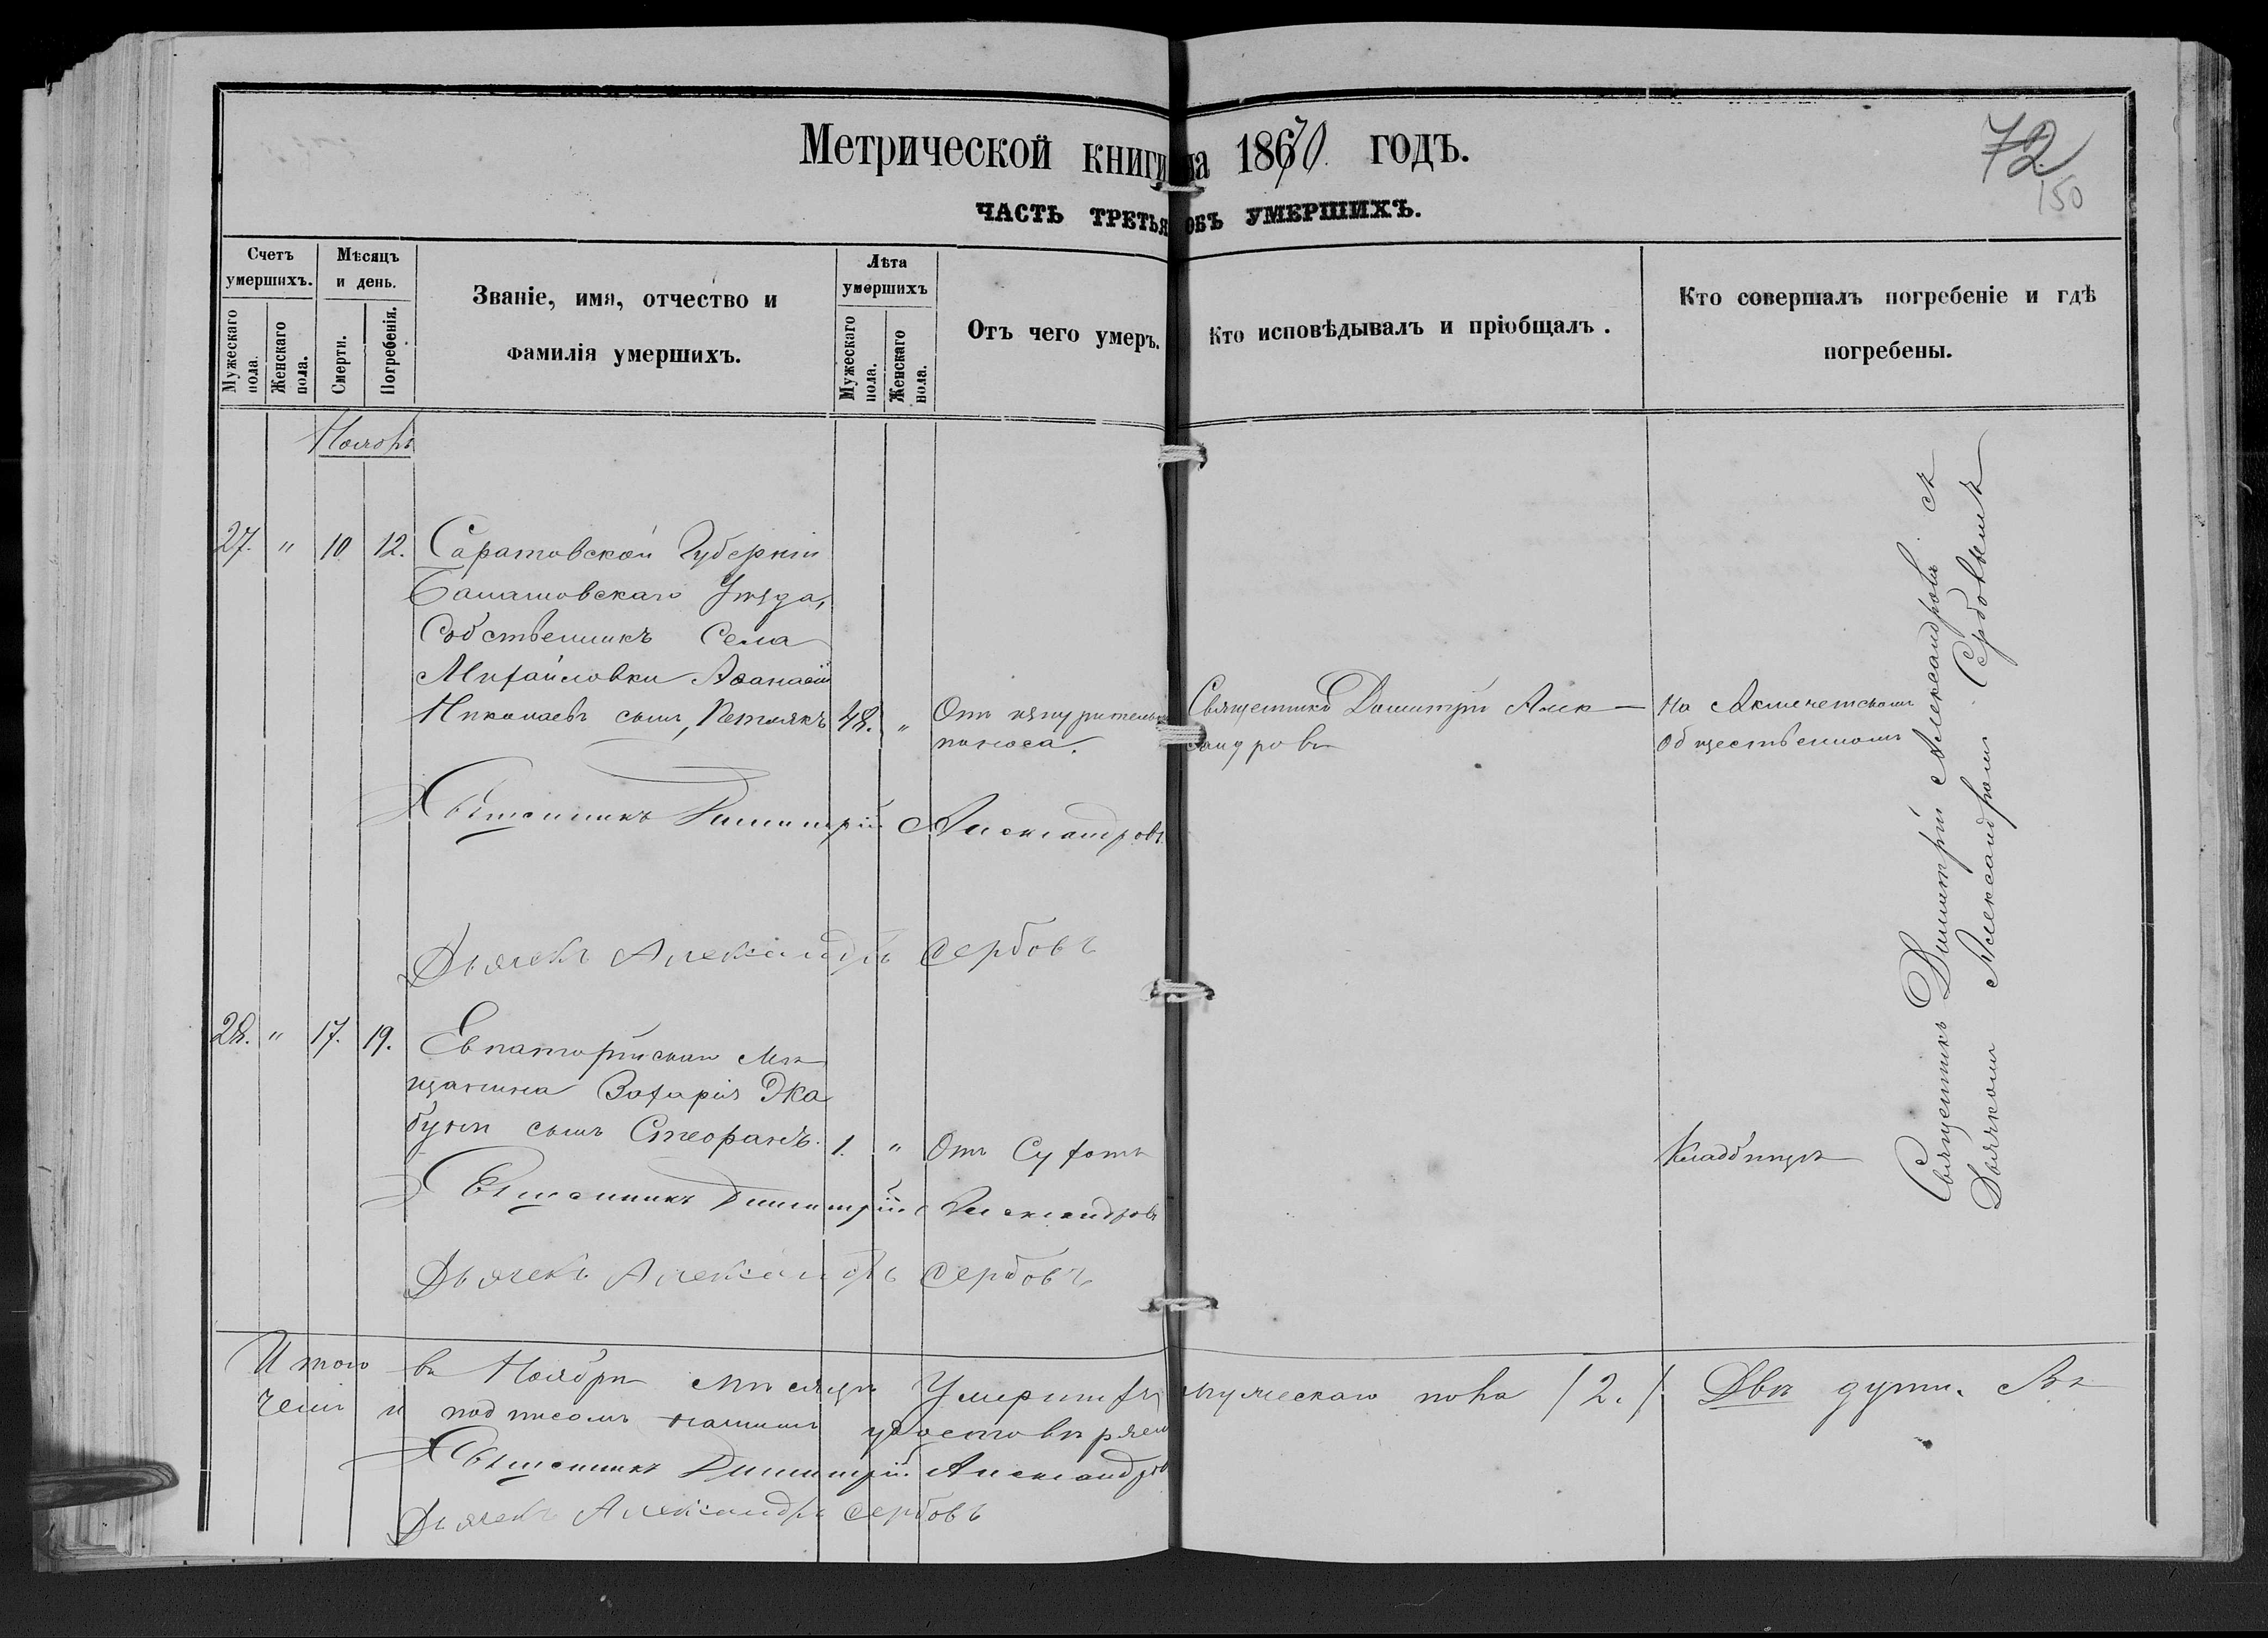 Метрической книги на 1870 годъ.
72
150
ЧАСТЬ ТРЕТЬЯ ОБЪ УМЕРШИХЪ.
Счетъ умершихъ.
Мужескаго пола.
Женскаго пола.
Мѣсяцъ и день.
Смерти.
Погребенія.
Званіе, имя, отчество и
фамилія умершихъ.
Лѣта умершихъ
Мужескаго пола.
Женскаго пола.
Отъ чего умеръ.
Кто исповѣдывалъ и пріобщалъ.
Кто совершалъ погребеніе и гдѣ
погребены.
Ноябрь
27. " 10 12. Саратовской Губерніи
Балашовскаго Уѣзда,
Собственникъ Села
Михайловки Аѳанасій
Николаевъ сынъ, Петлякъ 48. " Отъ изнурительн поноса. Священникъ Димитрій Алек-
сандровъ
На Акмечетскомъ
Общественномъ
Священникъ Димитрій Александровъ
Дьячекъ Александръ Сербовъ
28. " 17. 19. Евпаторійскаго Мѣ
щанина Захарія Эка
буки сынъ Стефанъ. 1. " Отъ Сухотъ
Кладбищѣ
Священникъ Димитрій Александровъ съ
Дьячкомъ Александромъ Сербовымъ
Священникъ Димитрій Александровъ
Дьячекъ Александръ Сербовъ
Итого въ Ноябрѣ мѣсяцѣ Умершихъ мужескаго пола /2./ Двѣ души. Въ
чемъ и подписомъ нашимъ удостовѣряемъ
Священникъ Димитрій Александровъ
Дьячекъ Александръ Сербовъ